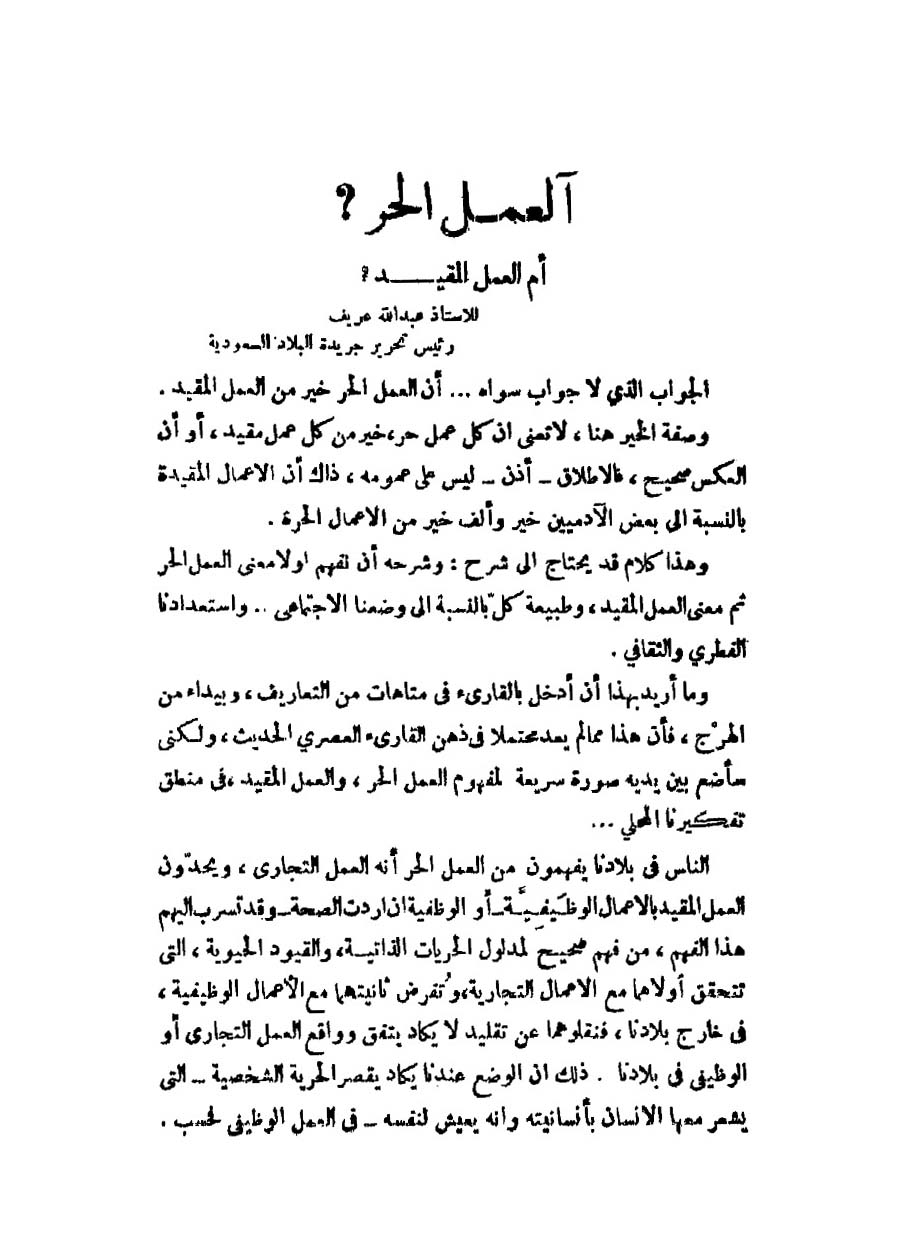 آلعمل الحر ؟
أم العمل المقيد ؟
للاستاذ عبدالله عريف
رئيس تحرير جريدة البلاد السعودية
الجواب الذي لا جواب سواه ... أن العمل الحر خير من العمل المقيد .
وصفة الخير هنا ، لاتعنى ان كل عمل حر، خير من كل عمل مقيد ، أو أن
العكس صحيح ، فالاطلاق ـ أذن ـ ليس على عمومه ، ذاك أن الاعمال المقيدة
بالنسبة الى بعض الآدميين خير وألف خير من الاعمال الحرة .
وهذا كلام قد يحتاج الى شرح : وشرحه أن نفهم اولا معنى العمل الحر
ثم معنى العمل المقيد ، وطبيعة كلّ بالنسبة الى وضعنا الاجتماعى .. واستعدادنا
الفطري والثقافي .
وما أريد بهذا أن أدخل بالقارىء فى متاهات من التعاريف ، وبيداء من
الهرْج ، فأن هذا ممالم يعد محتملا فى ذهن القارىء العصري الحديث ، ولكنى
سأضع بين يديه صورة سريعة لمفهوم العمل الحر ، والعمل المقيد ،فى منطق
تفكيرنا المحلي ...
الناس فى بلادنا يفهمون من العمل الحر أنه العمل التجارى ، ويحدّون
العمل المقيد بالاعمال الوظَيفِيَّة ـ أو الوظفية ان اردت الصحة ـ وقد تسرب اليهم
هذا الفهم ، من فهم صحيح لمدلول الحريات الذاتية، والقيود الحيوية ، التى
تتحقق أولاهما مع الاعمال التجارية، وتُفرض ثانيتهما مع الأعمال الوظيفية ،
فى خارج بلادنا ، فنقلوهما عن تقليد لا يكاد يتفق وواقع العمل التجارى أو
الوظيفى فى بلادنا . ذلك ان الوضع عندنا يكاد يقصر الحرية الشخصية ـ التى
يشعر معها الانسان بأنسانيته وانه يعيش لنفسه ـ فى العمل الوظيفى لحسب .